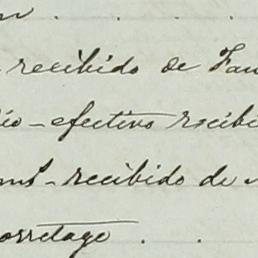 recibido de Fau
io - efectivo recibi
ms - recibido de
orretage . .